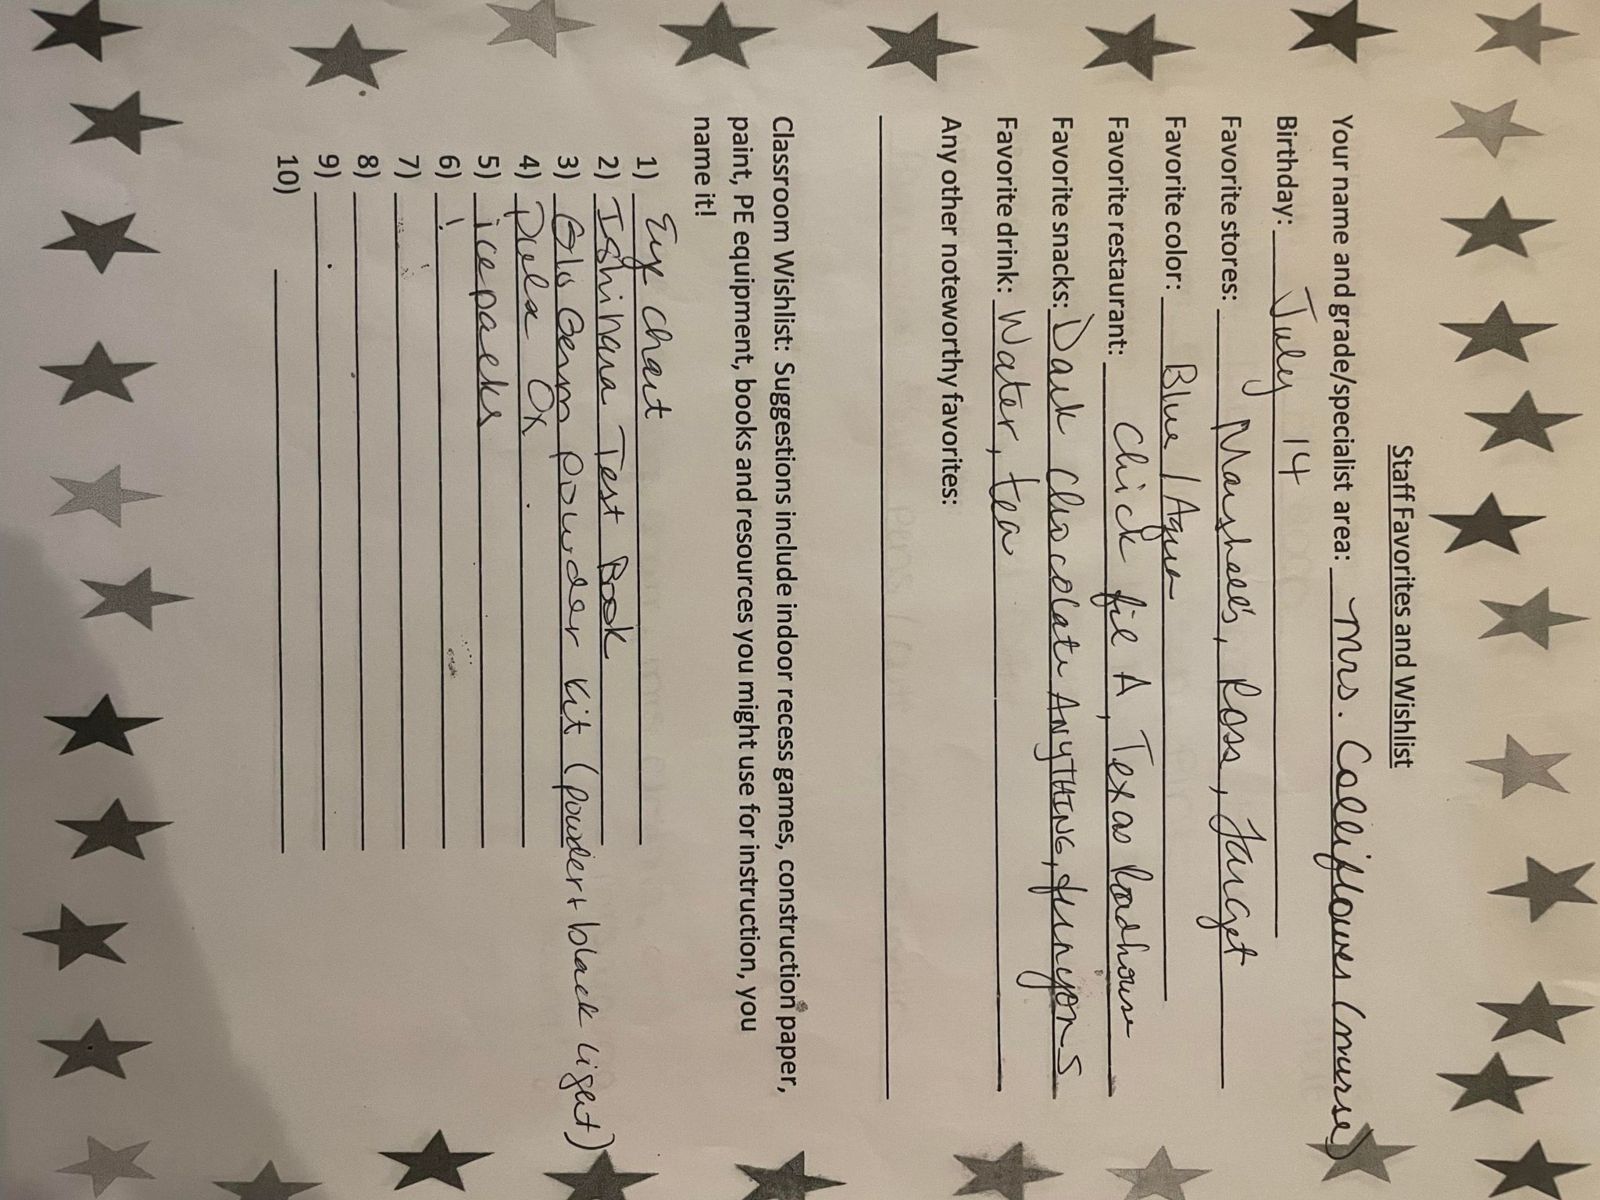 Staff Favorites and Wishlist
Your name and grade/specialist area: Mrs. Colliflower (nurse)
Birthday: July 14
Favorite stores: Marshall's, Ross, Target
Favorite color: Blue / Aqua
Favorite restaurant: Chick fil A, Texas Roadhouse
Favorite snacks: Dark Chocolate ANYTHING, funyons
Favorite drink: Water, tea
Any other noteworthy favorites:
Classroom Wishlist: Suggestions include indoor recess games, construction paper,
paint, PE equipment, books and resources you might use for instruction, you
name it!
1) Eye chart
2) Ishihara Test Book
3) Glo Germ powder kit (powder + black light)
4) Pulse Ox
5) icepacks
6)
7)
8)
9)
10)